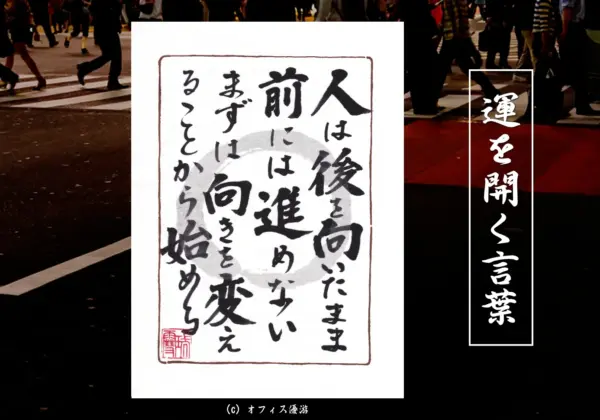 運を開く言葉
人は後を向いたまま
前には進めない
まずは向きを変え
ることから始める
(C) オフィス優游